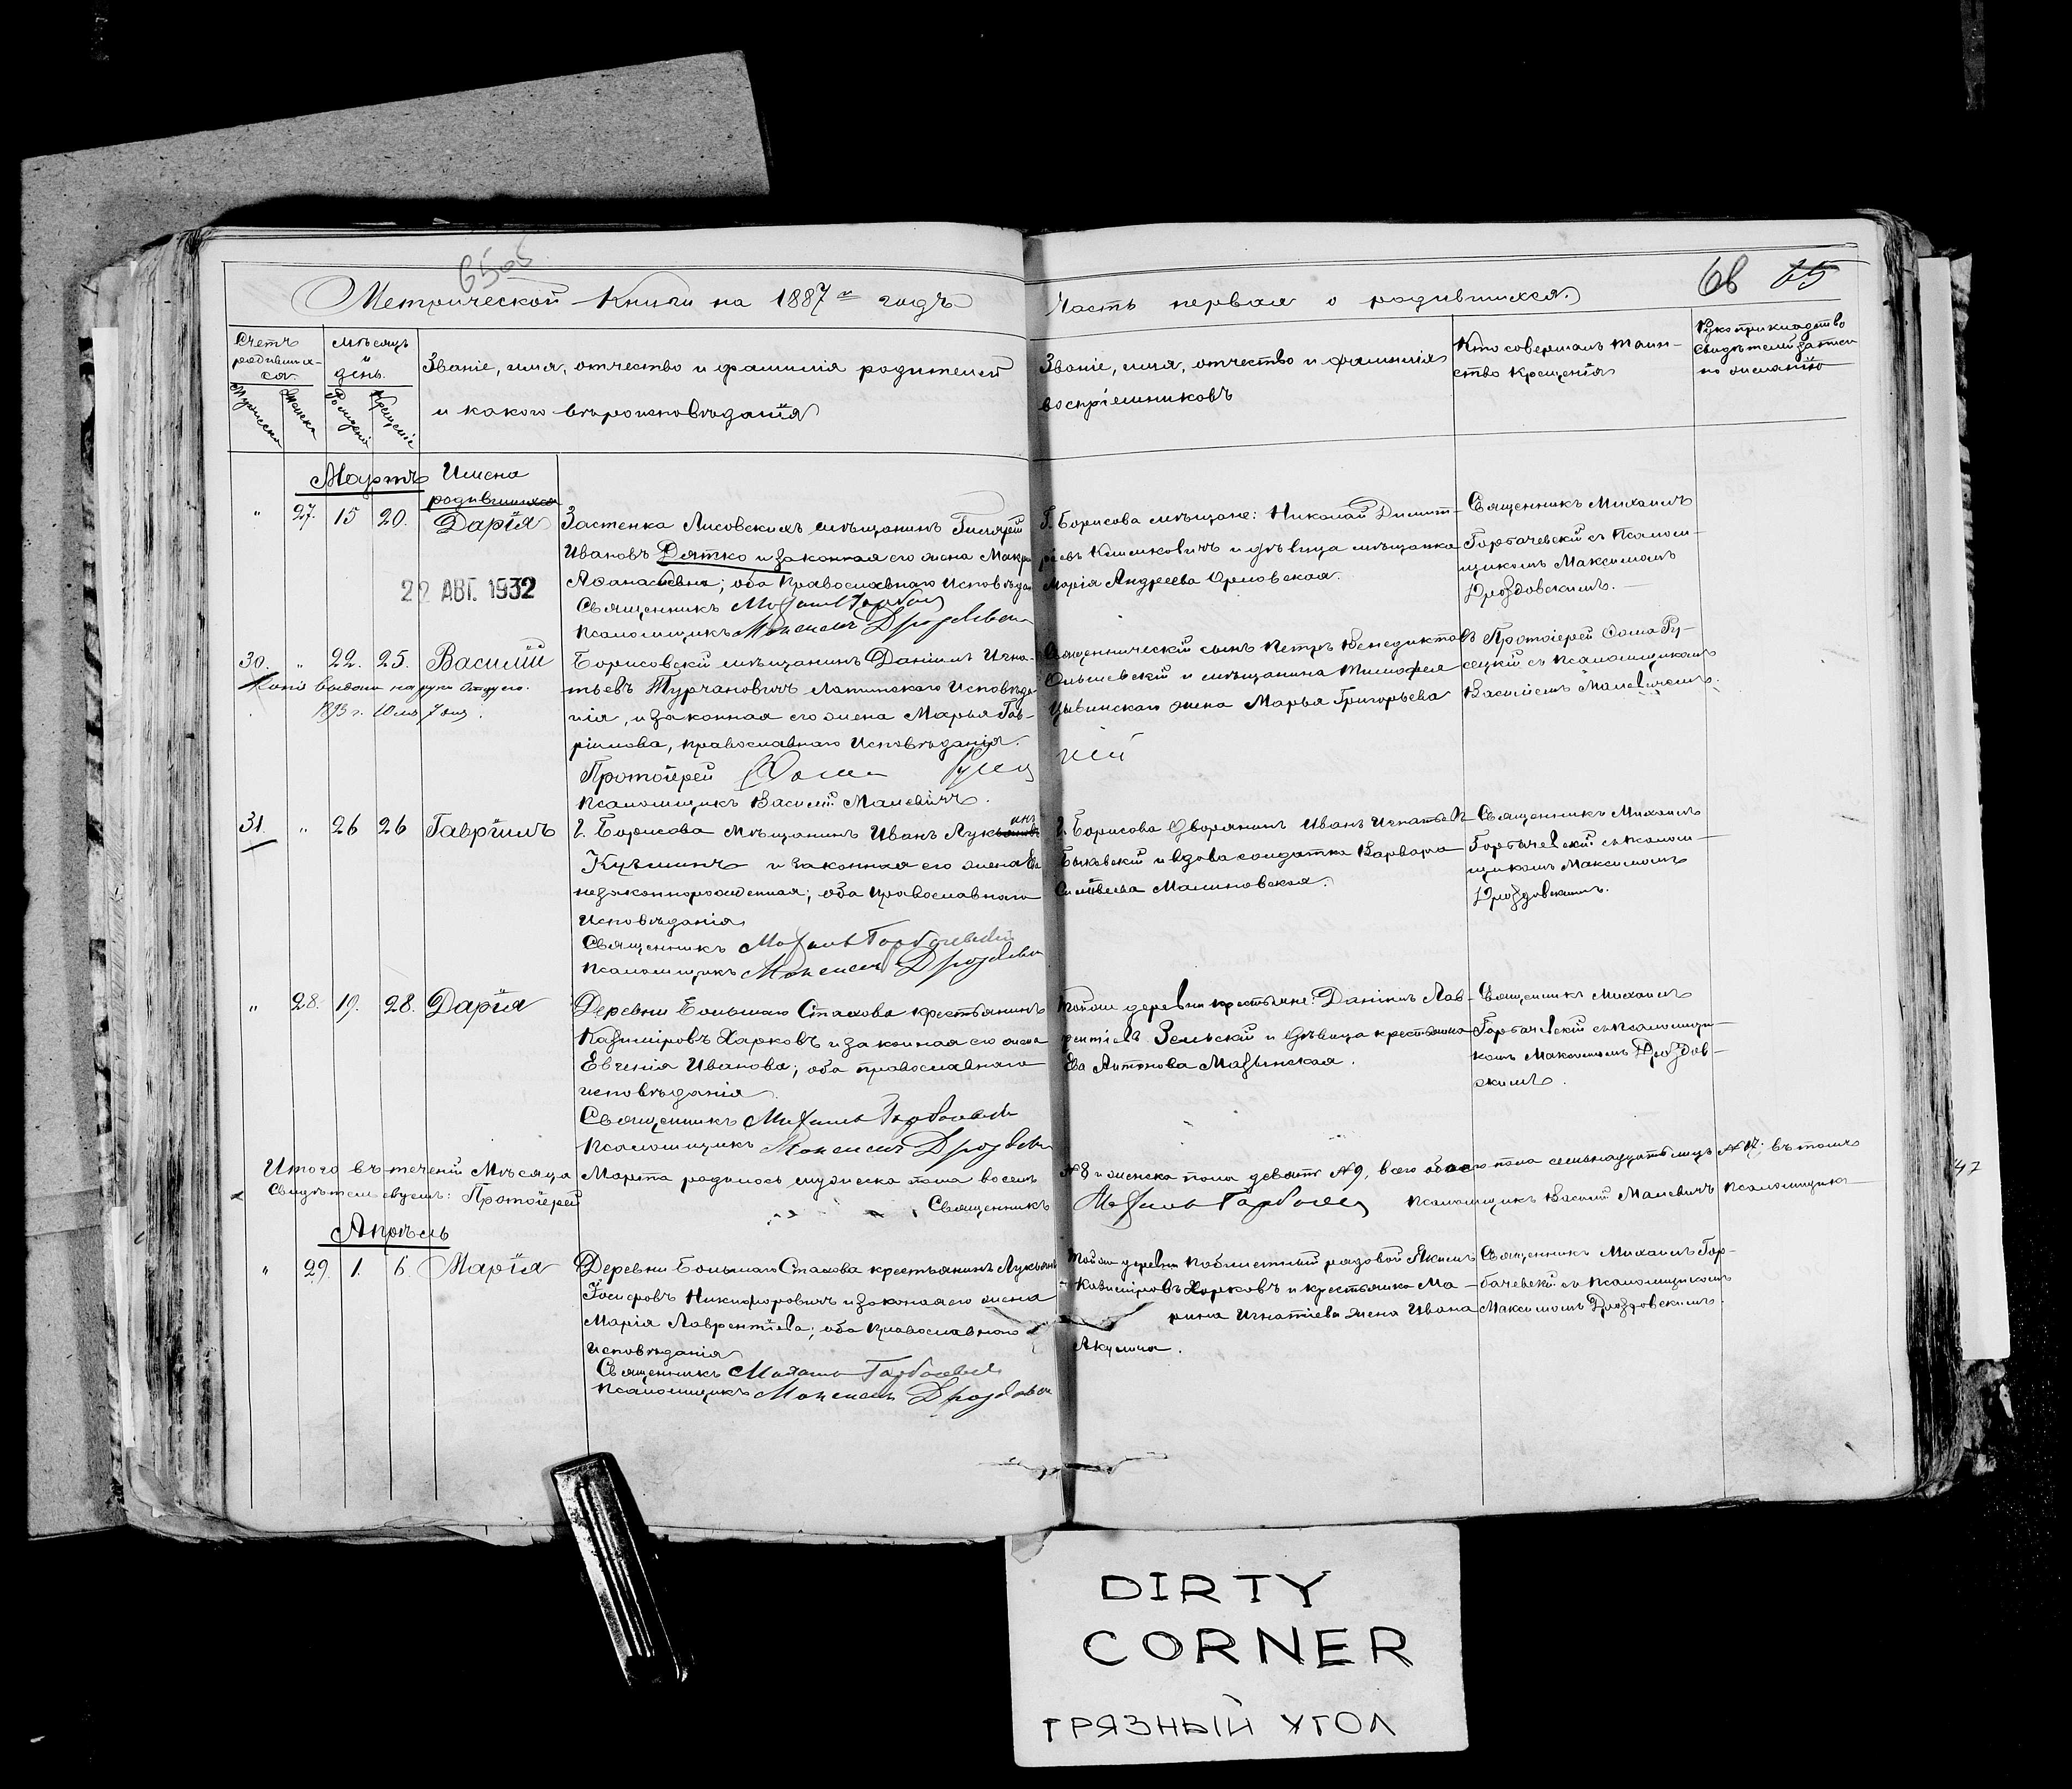 65об
Метрической Книги на 1887й годъ
Часть первая о родившихся.
68 65
Счетъ родившихся.
Мѣсяцъ и день.
Званіе, имя, отчество и фамилія родителей
и какого вѣроисповѣданія
Званіе, имя, отчество и фамилія
воспріемниковъ
Кто совершалъ таин-
ство крещенія
Рукоприкладство
свидѣтелей записи
по желанію
Мартъ
Имена
родившихся
" 27. 15 20. Дарія
Застенка Лисовскихъ мѣщанинъ
Ивановъ Дятко и законная его жена
Аѳанасьевна; оба Православнаго Исповѣда
Священникъ Михаилъ Горбач
Псаломщикъ Максимъ Дроздовск
Г. Борисова мѣщане: Николай Димит-
ріевъ Климковичъ и дѣвица мѣщанка
Марія Андреева Орловская.
Священникъ Михаилъ
Горбачевскій съ Псалом-
щикомъ Максимомъ
Дроздовскимъ.
22 АВГ. 1932
30. " 22. 25. Василій
Копія выдана на руки отцу его.
1893 г. Юля 7 дня.
Борисовскій мѣщанинъ Даніилъ Игна-
тьевъ Турчановичъ Латинскаго Исповѣда
нія, и законная его жена Марья Гав-
ріилова, православнаго Исповѣданія.
Протоіерей Ѳома Русец кій
Псаломщикъ Василій Малевичъ.
Священническій сынъ Петръ Бенедиктовъ
Ольшевскій и мѣщанина Тимофея
Цывинскаго жена Марья Григорьева
Протоіерей Ѳома Ру-
сецкій съ Псаломщикомъ
Василіемъ Малевичемъ.
31. " 26 26 Гавріилъ
Г. Борисова Мѣщанинъ Иванъ Лукьяновъ
Кузьминъ и законная его жена Ев
незаконнорожденная; оба православнаго
Исповѣданія
Священникъ Михаилъ Горбачевскій
Псаломщикъ Максимъ Дроздовск
Г. Борисова Дворянинъ Иванъ Игнатьевъ
Быковскій и вдова солдатка Варвара
Малиновская.
Священникъ Михаилъ
Горбачевскій съ псалом-
щикомъ Максимомъ
Дроздовскимъ.
" 28. 19. 28. Дарія
Деревни Большаго Стахова крестьянинъ
Казиміровъ Харковъ и законная его жена
Евгенія Иванова; оба православнаго
исповѣданія
Священникъ Михаилъ Горбачевскій
Псаломщикъ Максимъ Дроздовск
Тойже деревни крестьяне: Даніилъ Лав-
рентіевъ Зельскій и дѣвица крестьянка
Ева Антонова Мазынская.
Священникъ Михаилъ
Горбачевскій съ Псаломщи-
комъ Максимомъ Дроздов-
скимъ.
Итого въ теченіи Мѣсяца Марта родилось мужеска пола восемь
№ 8 и женска пола девять № 9, всего обоего пола семьнадцать лицъ № 17; въ томъ
Свидѣтельствуемъ: Протоіерей
Священникъ Михаилъ Горбачев
Псаломщикъ Василій Малевичъ Псаломщикъ
Апрѣль
" 29. 1. 6. Марія
Деревни Большаго Стахова крестьянинъ Лукьянъ
Іосифовъ Никифоровичъ и законная его жена
Марія Лаврентіева; оба православнаго
Исповѣданія
Священникъ Михаилъ Горбачевскій
Псаломщикъ Максимъ Дроздовск
Тойже деревни рядовой Якимъ
Казиміровъ Харковъ и крестьянка Ма-
рина Игнатіева жена Ивана
Акулича.
Священникъ Михаилъ Гор-
бачевскій съ псаломщикомъ
Максимомъ Дроздовскимъ.
DIRTY
CORNER
ГРЯЗНЫЙ УГОЛ